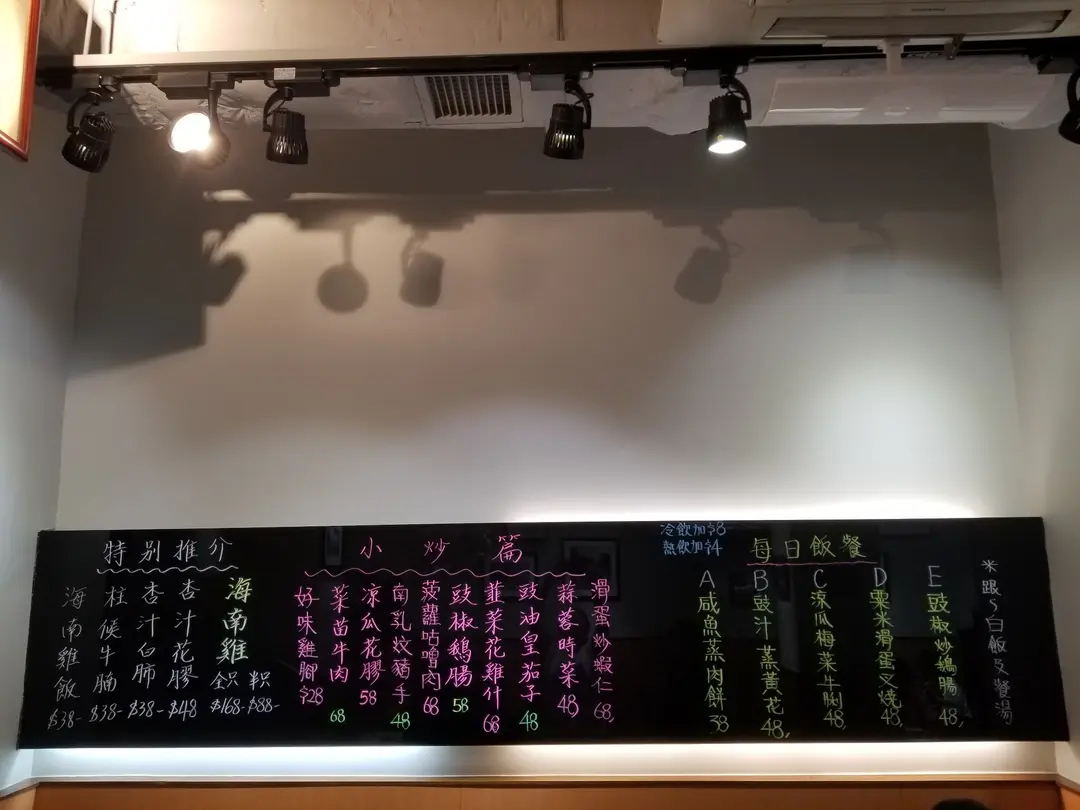 特別推介
海南雞飯 $38-
柱候牛腩 $38-
杏汁白肺 $38-
杏汁花膠 $48
海南雞
全只 $168-
半只 $88-
小炒篇
好味雞腳 $28
菜苗牛肉 68
凉瓜花膠 58
南乳炆豬手 48
菠蘿咕嚕肉 68
豉椒鵝腸 58
韮菜花雞什 68
豉油皇茄子 48
蒜蓉時菜 48,
滑蛋炒蝦仁 68,
冷飲加$8
熱飲加$4
每日飯餐
A 咸魚蒸肉餅 38
B 豉汁蒸黃花 48,
C 凉瓜梅菜牛脷 48,
D 粟米滑蛋叉燒 48,
E 豉椒炒鵝腸 48,
*跟白飯及餐湯